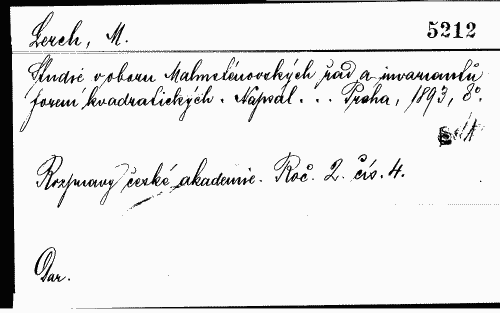 Lerch, M. 5212
Studie v oboru Malmsténovských řad a invariantů
forem kvadratických. Napsal... Praha, 1893, 8°.
Rozpravy české akademie. Roč. 2. čís. 4.
Dar.